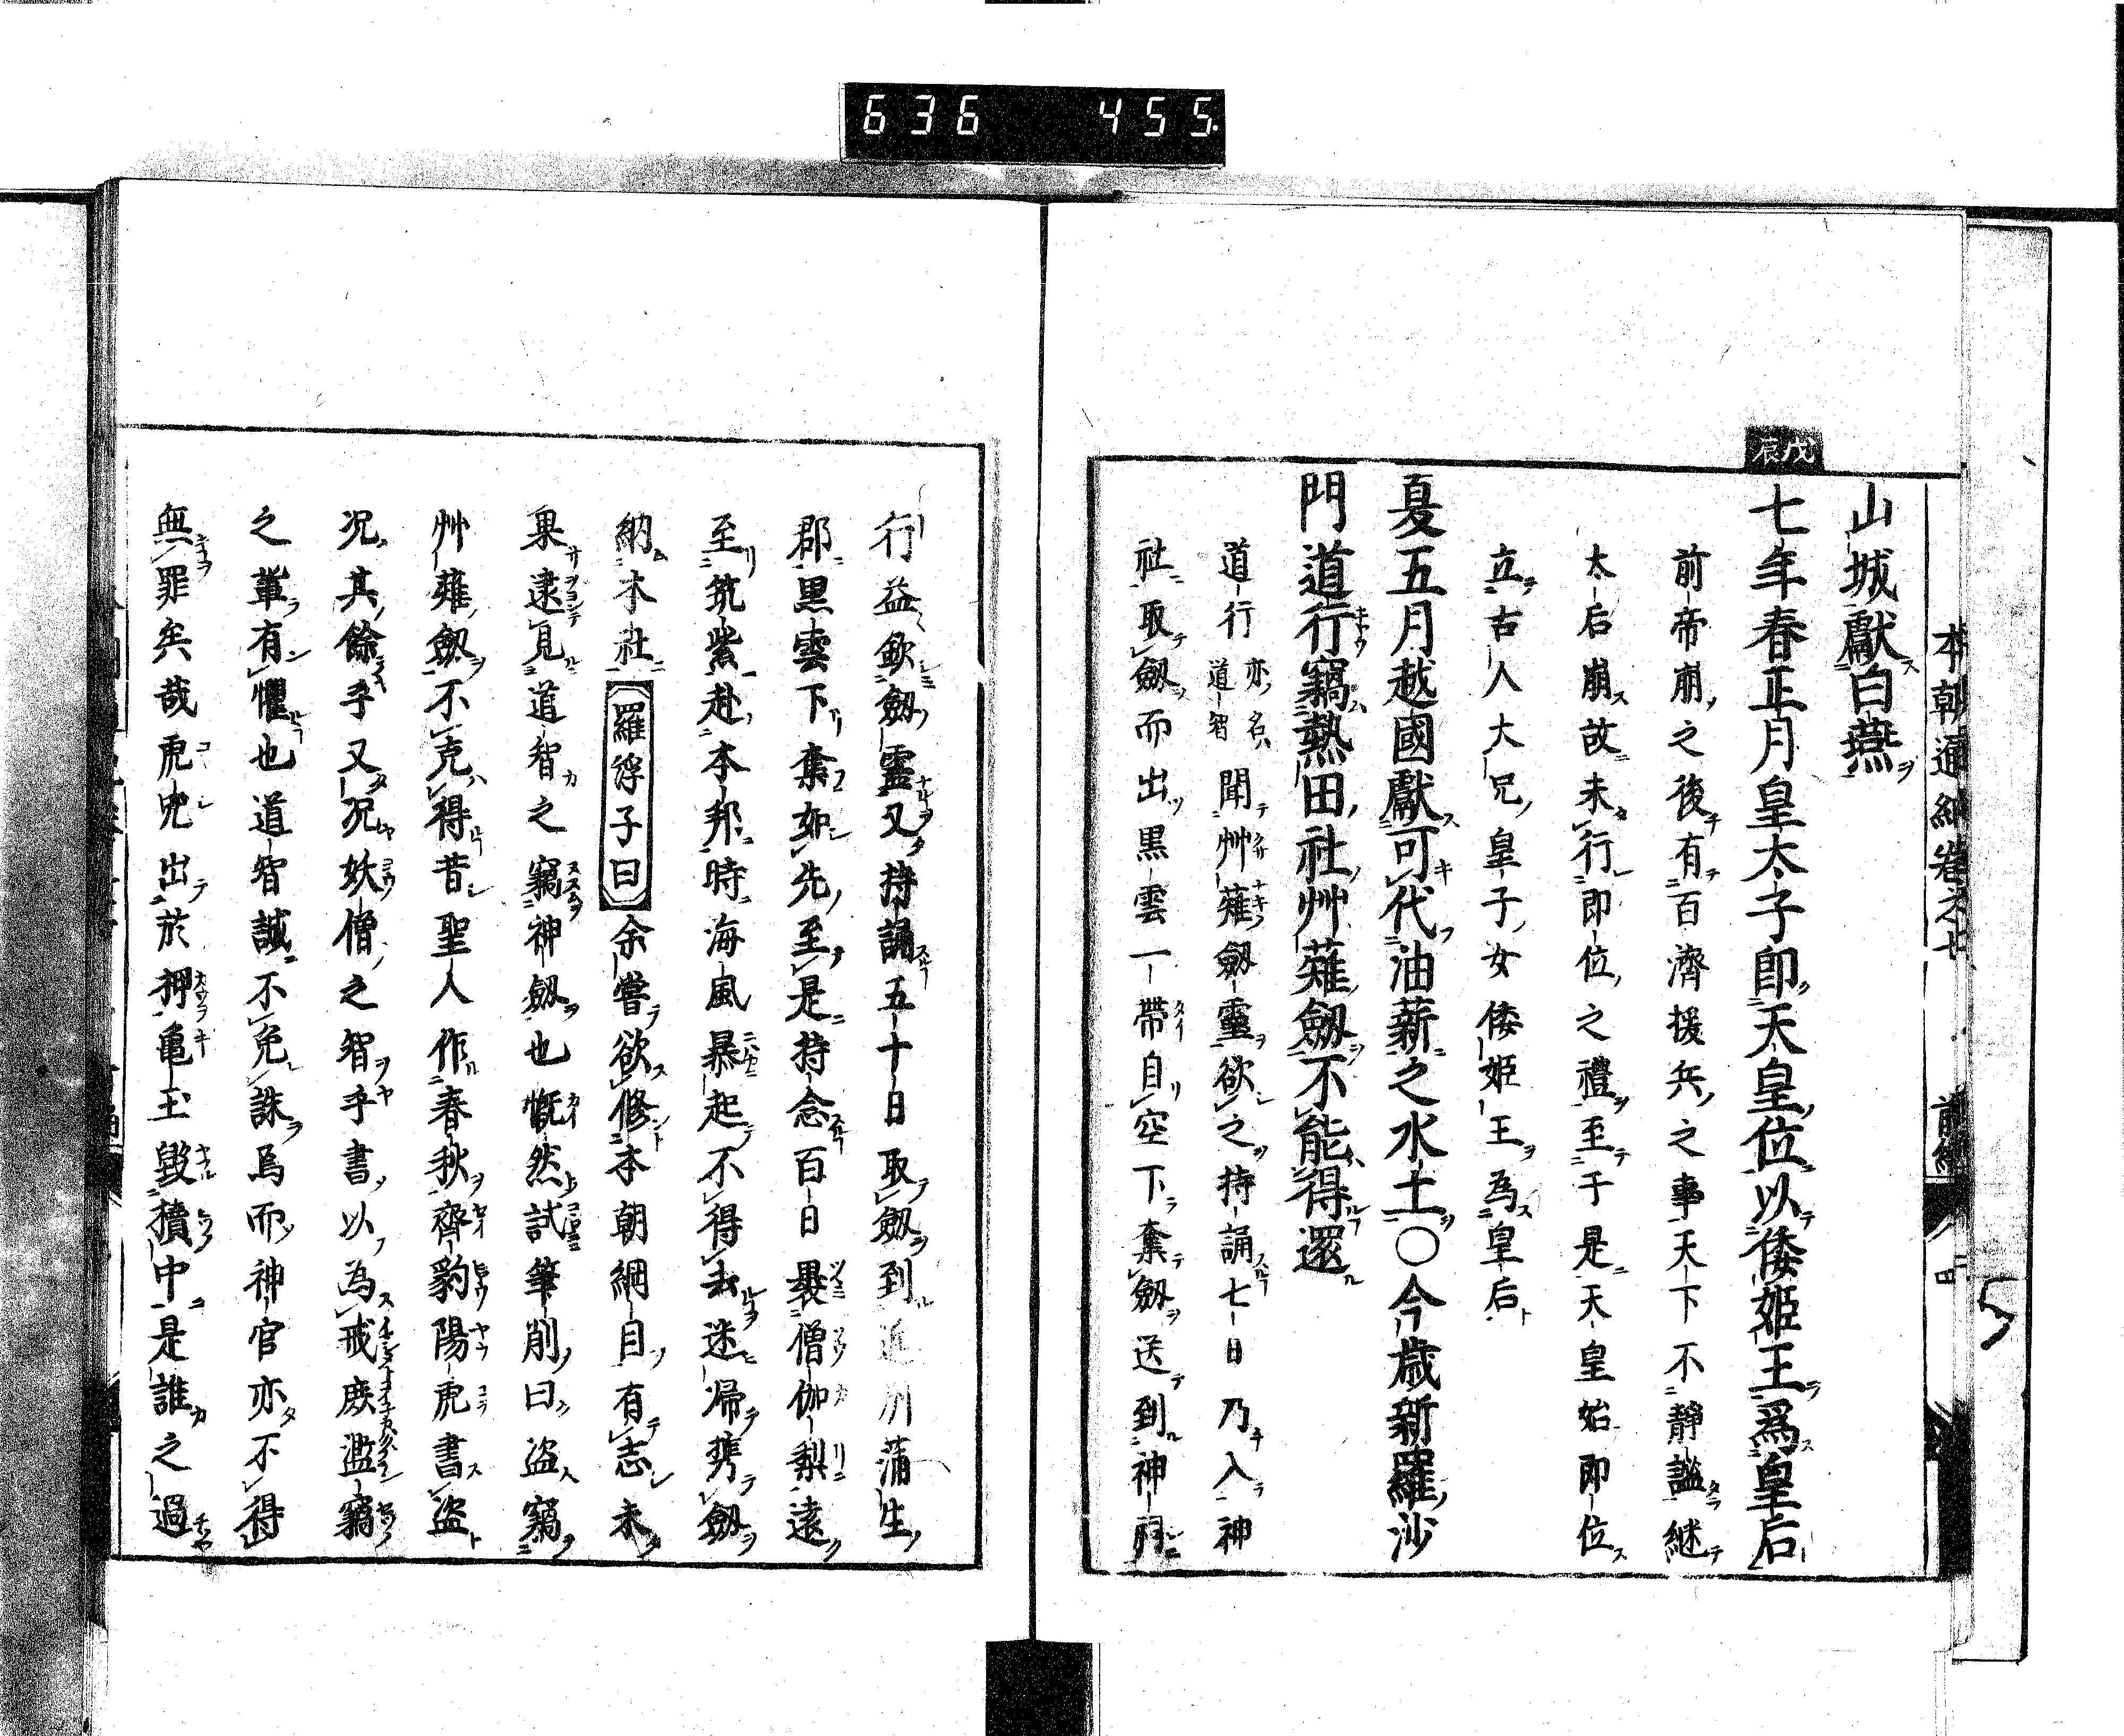 636 455
本朝通紀卷之七 前編 二四
山城獻白燕
戊辰
七年春正月皇太子即天皇位以倭姫王爲皇后
前帝崩之後有百濟援兵之事天下不靜謐継
太后崩故未行即位之禮至于是天皇始即位
立古人大兄皇子女倭姫王為皇后
夏五月越國獻可代油薪之水土〇今歳新羅沙
門道行竊熱田社艸薙劔不能得還
道行亦名道智聞艸薙劔靈欲之持誦七日乃入神
社取劔而出黒雲一帶自空下奪劔送到神祠
行益欽劔靈又持誦五十日取劔到近州蒲生
郡黒雲下奪如先至是持念百日褁僧伽梨遠
至筑紫赴本邦時海風暴起不得去迷帰携劔
納本社羅浮子曰余嘗欲修本朝綱目有志未
果逮見道智之竊神劔也慨然試筆削曰盗竊
艸薙劔不克得昔聖人作春秋齊豹陽虎書盗
况其餘乎又况妖僧之智乎書以為戒庶濫竊
之輩有懼也道智誠不免誅焉而神官亦不得
無罪矣哉虎兕出於押亀玉毀櫝中是誰之過
5